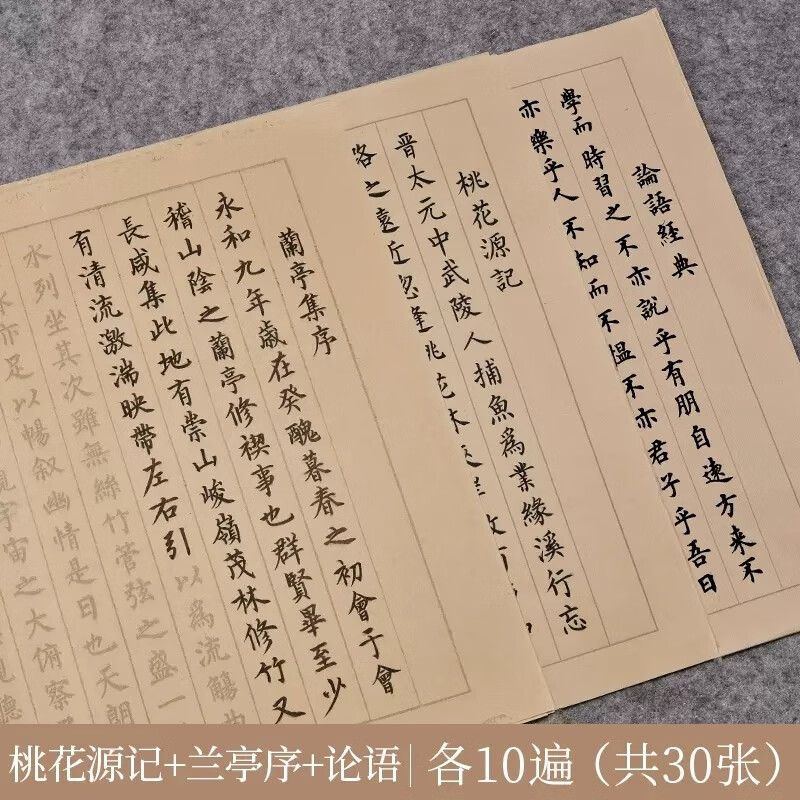 論語經典
學而時習之不亦說乎有朋自遠方来不
亦樂乎人不知而不愠不亦君子乎吾日
桃花源記
晉太元中武陵人捕魚爲業緣溪行忘
路之遠近忽逢桃花林
蘭亭集序
永和九年歲在癸醜暮春之初會于會
稽山陰之蘭亭修禊事也群賢畢至少
長咸集此地有崇山峻嶺茂林修竹又
有清流激湍映帶左右引以爲流觴曲
水列坐其次雖無絲竹管弦之盛一
亦足以暢叙幽情是日也天朗
觀宇宙之大俯察
桃花源记+兰亭序+论语|各10遍（共30张）